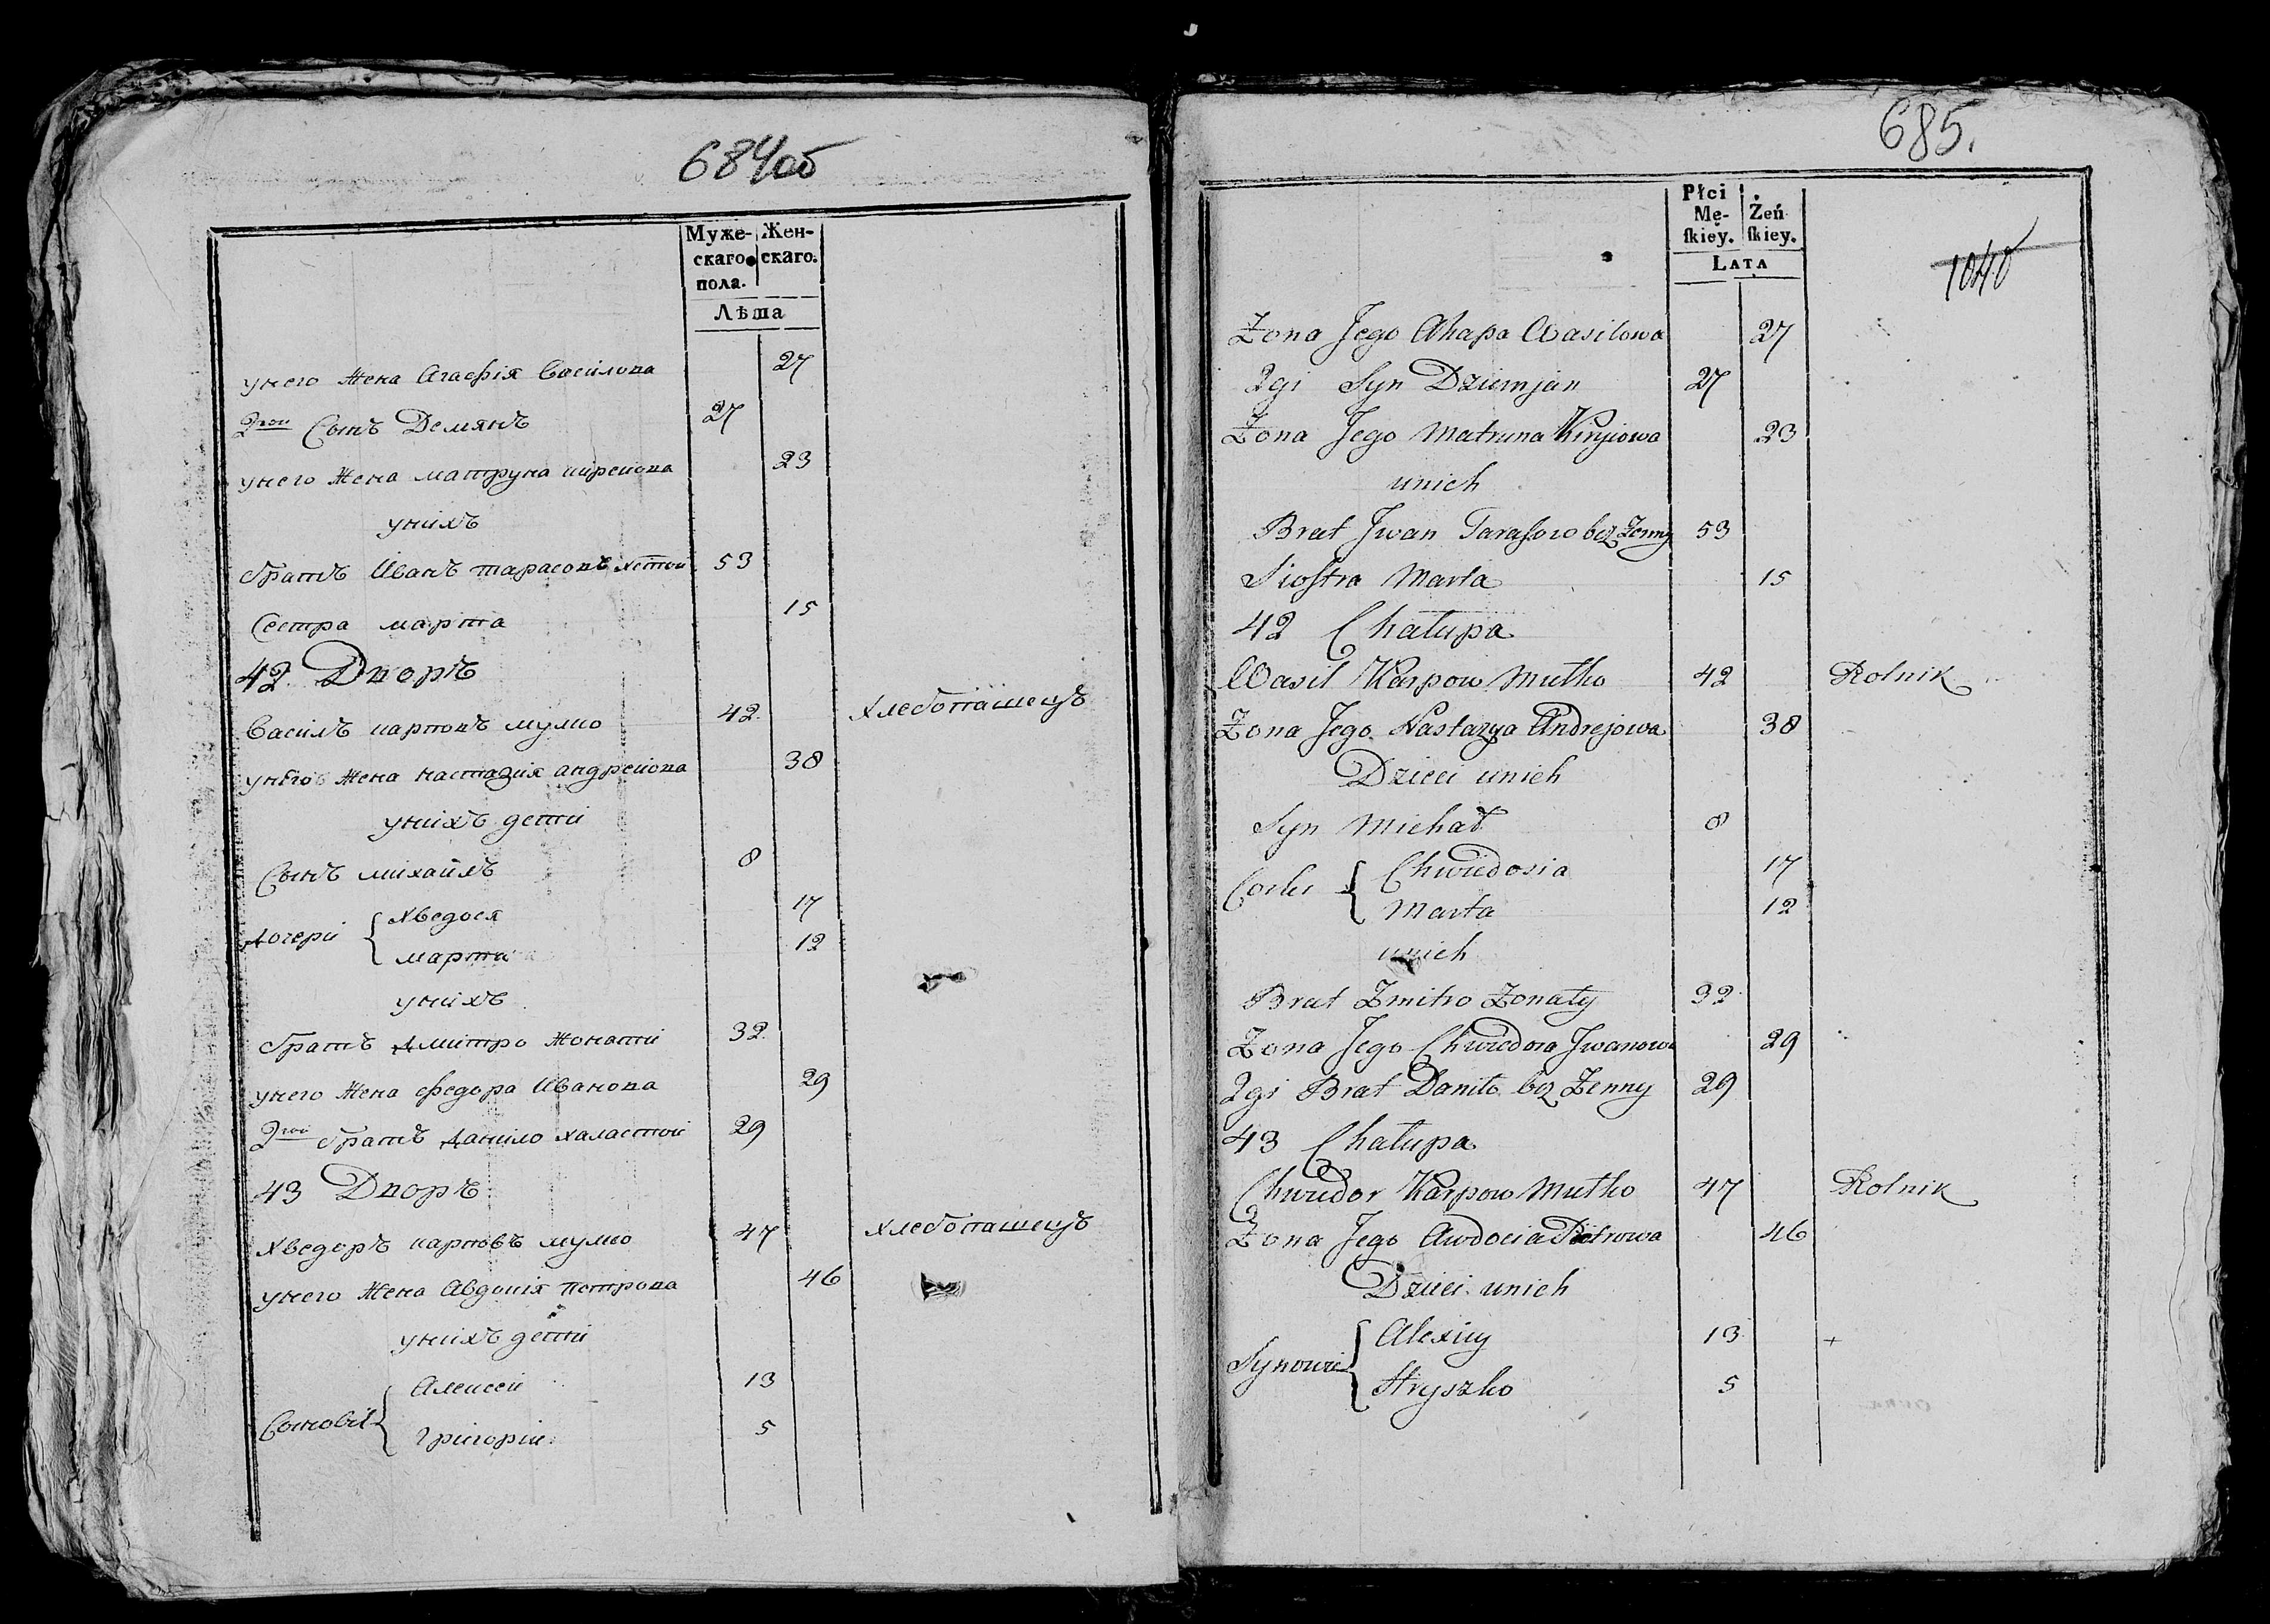 684об
Муже-
скаго
пола.
Жен-
скаго.
Лѣта
унего жена Агафія Василова 27
2гои Сынъ Демянъ 27
унего жена матруна киреиова 23
унихъ
братъ Иванъ тарасовъ хстои 53
Сестра марта 15
42 Дворъ
Василъ карповъ мутко 42 хлебопашецъ
унего жена настазия андреиова 38
унихъ дети
Сынъ михаилъ 8
дочери { хведося 17
марта 12
унихъ
братъ дмитро жонатои 32
унего жена федора Иванова 29
2гои братъ данило халастои 29
43 Дворъ
хведоръ карповъ мутко 47 хлебопашецъ
унего жена Авдоцiя петрова 46
унихъ дети
Сыновія { Алексеи 13
григории 5
685.
Płci
Mę-
ſkiey.
Żeń
ſkiey.
Lata
Żona Jego Ahapa Wasilowa 27
2gi Syn Dziemjan 27
Żona Jego Matruna Kiryiowa 23
unich
Brat Jwan Taraſow bez Żenny 53
Sioſtra Marta 15
42 Chałupa
Wasil Karpow Mutko 42 Rolnik
Żona Jego Nastazya Andrejowa 38
Dzieci unich
Syn Michał 8
Corki { Chwiedosia 17
Marta 12
unich
Brat Zmitro Żonaty 32
Żona Jego Chwiedora Jwanowa 29
2gi Brat Daniło bez Żenny 29
43 Chałupa
Chwiedor Karpow Mutko 47 Rolnik
Żona Jego Awdocia Piotrowa 46
Dzieci unich
Synowie { Alexiey 13 +
Hryszko 5